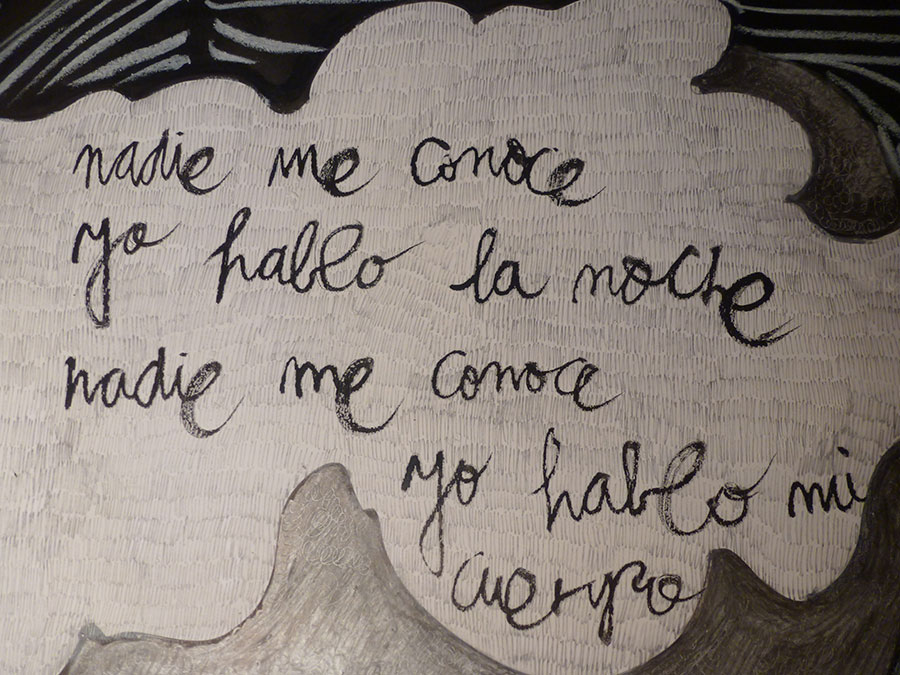 nadie me conoce
yo hablo la noche
nadie me conoce
yo hablo mi
cuerpo